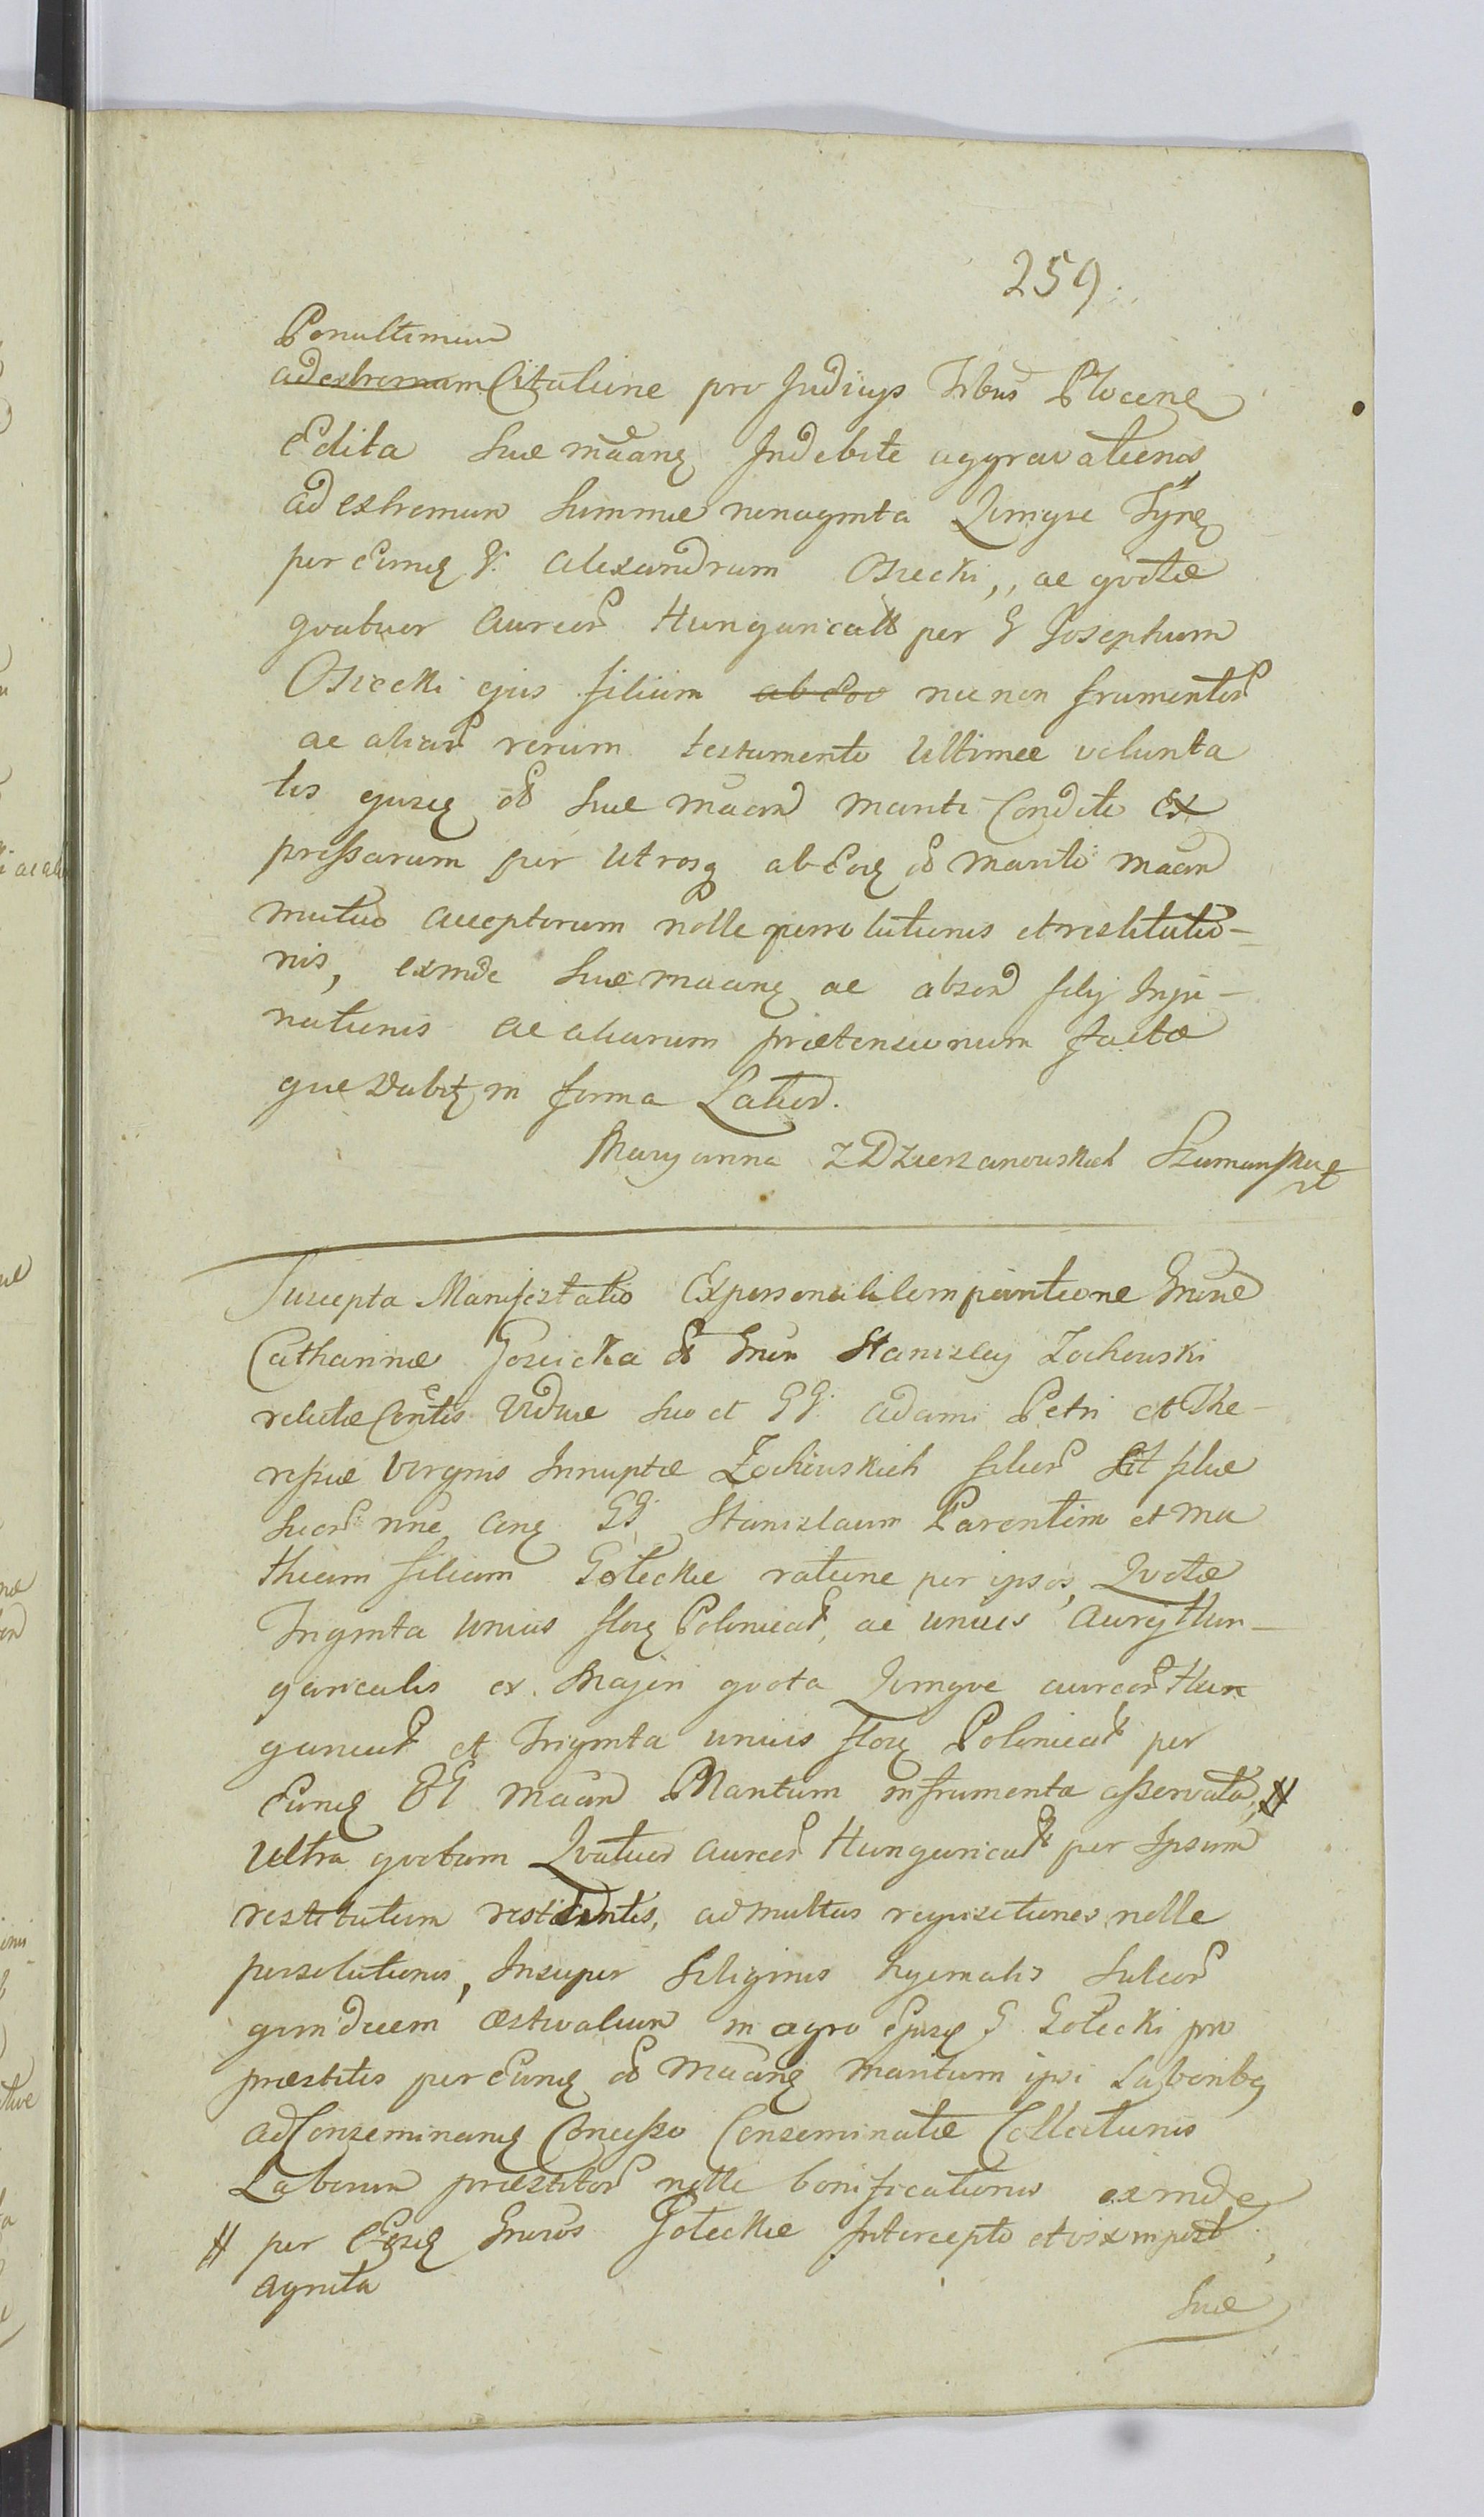 259.
Penultimum
ad extremam Citatione pro Judicijs Trbus Plocens
Edita Sue maans Indebite aggravationis
ad extremum Summe nonaginta Quinque Tynf
per Eund G. Alexandrum Osiecki,, ac quotae
quatuor Aureor Hungarical per G Josephum
Osiecki ejus filium ab Eod nec non frumentor
ac aliar rerum testamento Ultimae volunta
tis ejusd ol Suae maand Mariti Condito Ex
pressarum per Utrosq ab Eod ol Marito maan
mutuo acceptorum nolle persolutionis et restitutio-
nis, exinde Suae maans ac absen filij Inju-
riationis ac aliarum praetensionum facta
que dabit in forma Latior.
Maryanna z Dzierzanowskich Szumanska
Suscepta Manifestatio Ex personali Comparitione Gnosae
Catharinae Gosicka ol Gnosi Stanislaj Zochowski
relictae Contis Viduae Suo et GG. Adami Petri et The-
resiae Virginis Innuptae Zochowskich filior et filiae
Suor nne Cong GG. Stanislaum Parentem et Ma
thiam filium Goleckie ratione per ipsos, Quotae
Triginta Unius flor Polonical, ac unius Aurej Hun-
garicalis ex Majori quota Quinque aureor Hun
garical et Triginta unius flor Polonical per
Eund Ol maan Maritum in frumenta asservata, #
Ultra quotam Quatuor aureor Hungarical per Ipsum
restitutum restantis, ad multas requisitiones nolle
persolutionis, Insuper Siliginis hyemalis Sulcor
quindecem aestivalium in agro Ejusd G Golecki pro
praestitis per Eund ol maans Maritum ipsi Laboribq
ad Conseminand Concesso Conseminatae Collectionis
Laborum praestitor nolle bonificationis exinde
# per Eosd Gnosos Goleckie Intercepto et vix in post
agnita
Suae